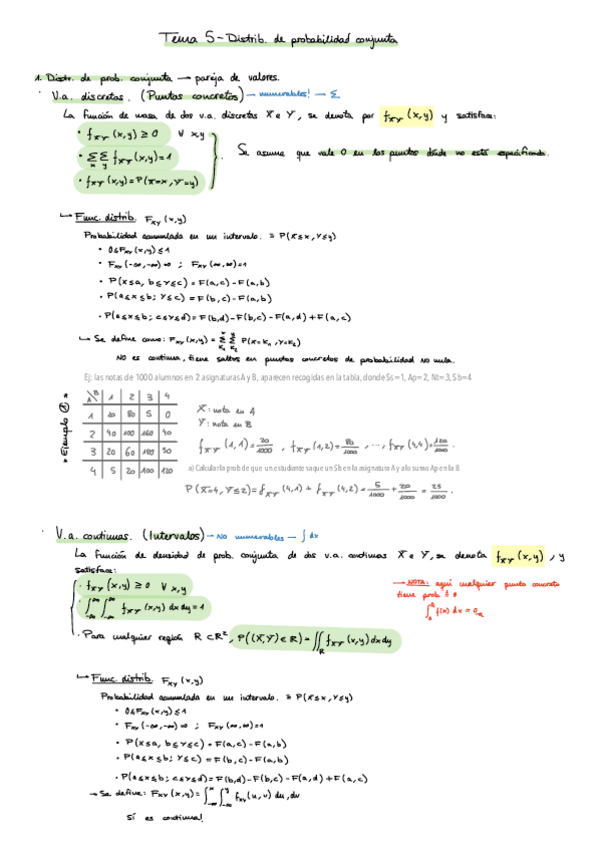 Tema 5 - Distrib. de probabilidad conjunta
1. Distr. de prob. conjunta → pareja de valores.
· V.a. discretas. (Puntos concretos) → numerables! → Σ
La función de masa de dos v.a. discretas X e Y, se denota por f_XY (x,y) y satisface:
· f_XY (x,y) ≥ 0 ∀ x,y
· Σ_x Σ_y f_XY (x,y) = 1
· f_XY (x,y) = P(X=x, Y=y)
. Se asume que vale 0 en los puntos donde no está especificada.
↳ Func. distrib. F_XY (x,y)
Probabilidad acumulada en un intervalo. ≡ P(X≤x, Y≤y)
• 0≤F_XY (x,y)≤1
• F_XY (-∞,-∞)=0 ; F_XY (∞,∞)=1
• P(X≤a, b≤Y≤c) = F(a,c) - F(a,b)
• P(a≤X≤b; Y≤c) = F(b,c) - F(a,c)
• P(a≤X≤b; c≤Y≤d) = F(b,d) - F(b,c) - F(a,d) + F(a,c)
↳ Se define como: F_XY (x,y) = Σ Σ P(X=k₁, Y=k₂)
NO es continua, tiene saltos en puntos concretos de probabilidad no nula.
Ej: las notas de 1000 alumnos en 2 asignaturas A y B, aparecen recogidas en la tabla, donde Ss=1, Ap=2, Nt=3, Sb=4
* Ejemplo ① *
A\B 1 2 3 4
1 20 80 5 0
2 40 100 160 40
3 20 60 100 50
4 5 20 100 120
X: nota en A
Y: nota en B
f_XY (1,1) = 20/1000 , f_XY (1,2) = 80/1000 , ..., f_XY (4,4) = 120/1000 .
a) Calcular la prob de que un estudiante saque un Sb en la asignatura A y a lo sumo Ap en la B
P(X=4, Y≤2) = f_XY (4,1) + f_XY (4,2) = 5/1000 + 20/1000 = 25/1000 .
· V.a. continuas. (Intervalos) → No numerables → ∫ dx
La función de densidad de prob. conjunta de dos v.a. continuas X e Y, se denota f_XY (x,y) , y
satisface:
· f_XY (x,y) ≥ 0 ∀ x,y
· ∫_-∞^∞ ∫_-∞^∞ f_XY (x,y) dx dy = 1
· Para cualquier región R⊂R², P((X,Y) ∈ R) = ∬_R f_XY (x,y) dx dy
→ NOTA: aquí cualquier punto concreto
tiene prob. 0
∫_a^a f(x) dx = 0
↳ Func. distrib. F_XY (x,y)
Probabilidad acumulada en un intervalo. ≡ P(X≤x, Y≤y)
• 0≤F_XY (x,y)≤1
• F_XY (-∞,-∞)=0 ; F_XY (∞,∞)=1
• P(X≤a, b≤Y≤c) = F(a,c) - F(a,b)
• P(a≤X≤b; Y≤c) = F(b,c) - F(a,b)
• P(a≤X≤b; c≤Y≤d) = F(b,d) - F(b,c) - F(a,d) + F(a,c)
→ Se define: F_XY (x,y) = ∫_-∞^x ∫_-∞^y f_XY (u,v) du, dv
Sí es continua!